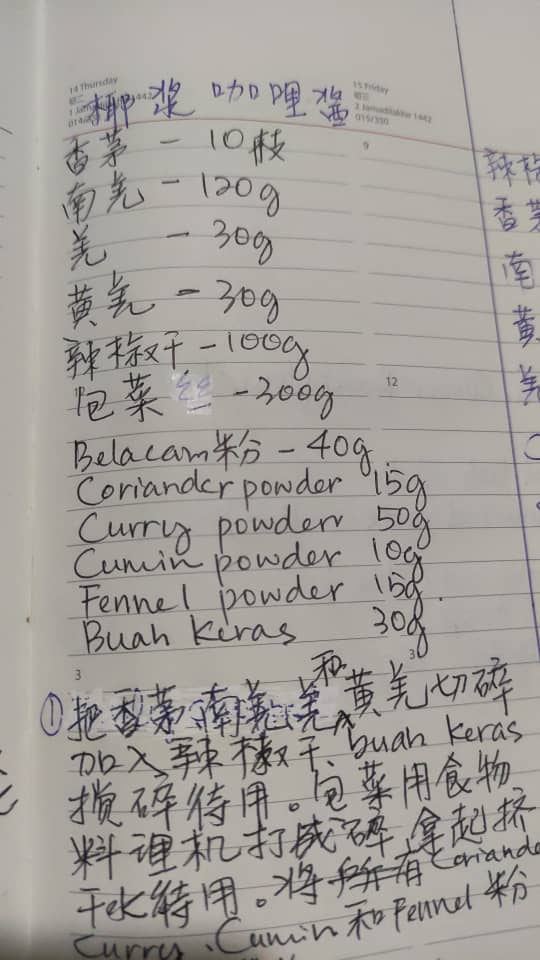 14 Thursday
初二
15 Friday
初三
2 Jamadilakhir 1442
015/350
椰浆咖哩酱
9
香茅 - 10枝
南羌 - 120g
羌 - 30g
黄羌 - 30g
辣椒干 - 100g
12
包菜丝 - 300g
Belacam粉 - 40g
Coriander powder 15g
Curry powderr 50g
Cumin powder 10g
Fennel powder 15g.
Buah keras 30g
3
3
① 把香茅、南羌、羌和黄羌切碎
加入辣椒干、buah keras
搅碎待用。包菜用食物
料理机打成碎,拿起挤
干水待用。将所有Coriande
Curry、Cumin和Fennel粉
辣椒
香茅
南
黄
羌